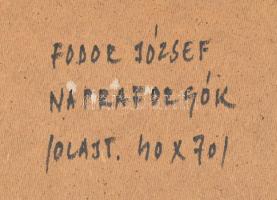 FODOR JÓZSEF
NAPRAFORGÓK
/OLAJT. 40 X 70/